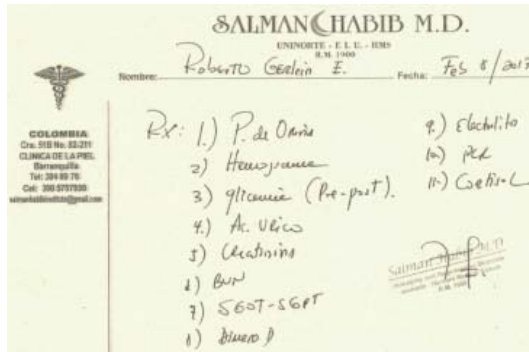 SALMAN HABIB M.D.
UNINORTE - E L U. - HMS
R.M. 1900
Nombre: Roberto Gerlein E. Fecha: Feb 8/2017
COLOMBIA
Cra. 51B No. 82-211
CLINICA DE LA PIEL
Barranquilla
Tel:
Cel: 300 5757930
Rx: 1.) P. de Orina
2) Hemograma
3) glicemia (Pre-post).
4.) Ac. Urico
5) Creatinina
6) BUN
7) SGOT-SGPT
8) Dimero D
9.) Electrolito
10) PCR
11-) Cortisol
Salman Habib M.D.